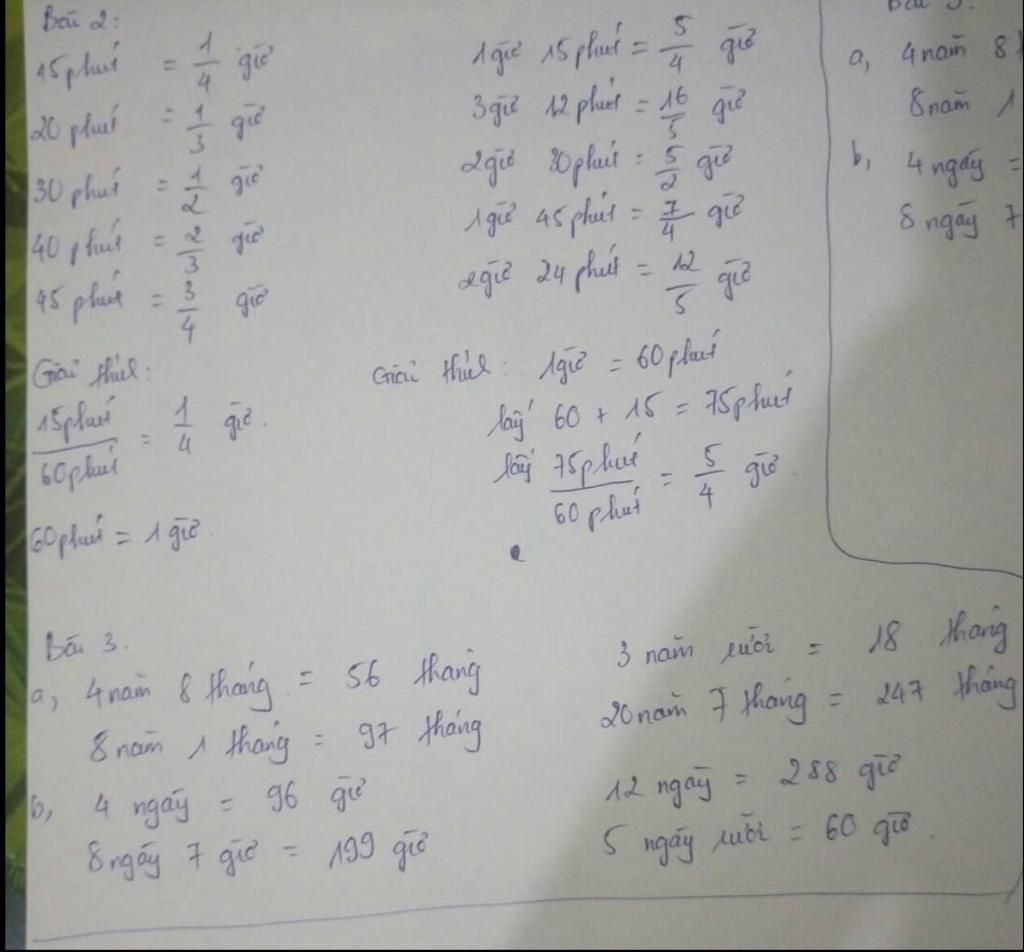 Bài 2:
15 phút = 1/4 giờ
20 phút = 1/3 giờ
30 phút = 1/2 giờ
40 phút = 2/3 giờ
45 phút = 3/4 giờ
1 giờ 15 phút = 5/4 giờ
3 giờ 12 phút = 16/5 giờ
2 giờ 30 phút = 5/2 giờ
1 giờ 45 phút = 7/4 giờ
2 giờ 24 phút = 12/5 giờ
Giải thích:
15 phút/60 phút = 1/4 giờ.
60 phút = 1 giờ.
Giải thích: 1 giờ = 60 phút
lấy 60 + 15 = 75 phút
lấy 75 phút/60 phút = 5/4 giờ.
a, 4 năm 8
8 năm 1
b, 4 ngày =
8 ngày 7
Bài 3.
a, 4 năm 8 tháng = 56 tháng
8 năm 1 tháng = 97 tháng
b, 4 ngày = 96 giờ
8 ngày 7 giờ = 199 giờ
3 năm rưỡi = 18 tháng
20 năm 7 tháng = 247 tháng
12 ngày = 288 giờ
5 ngày rưỡi = 60 giờ.